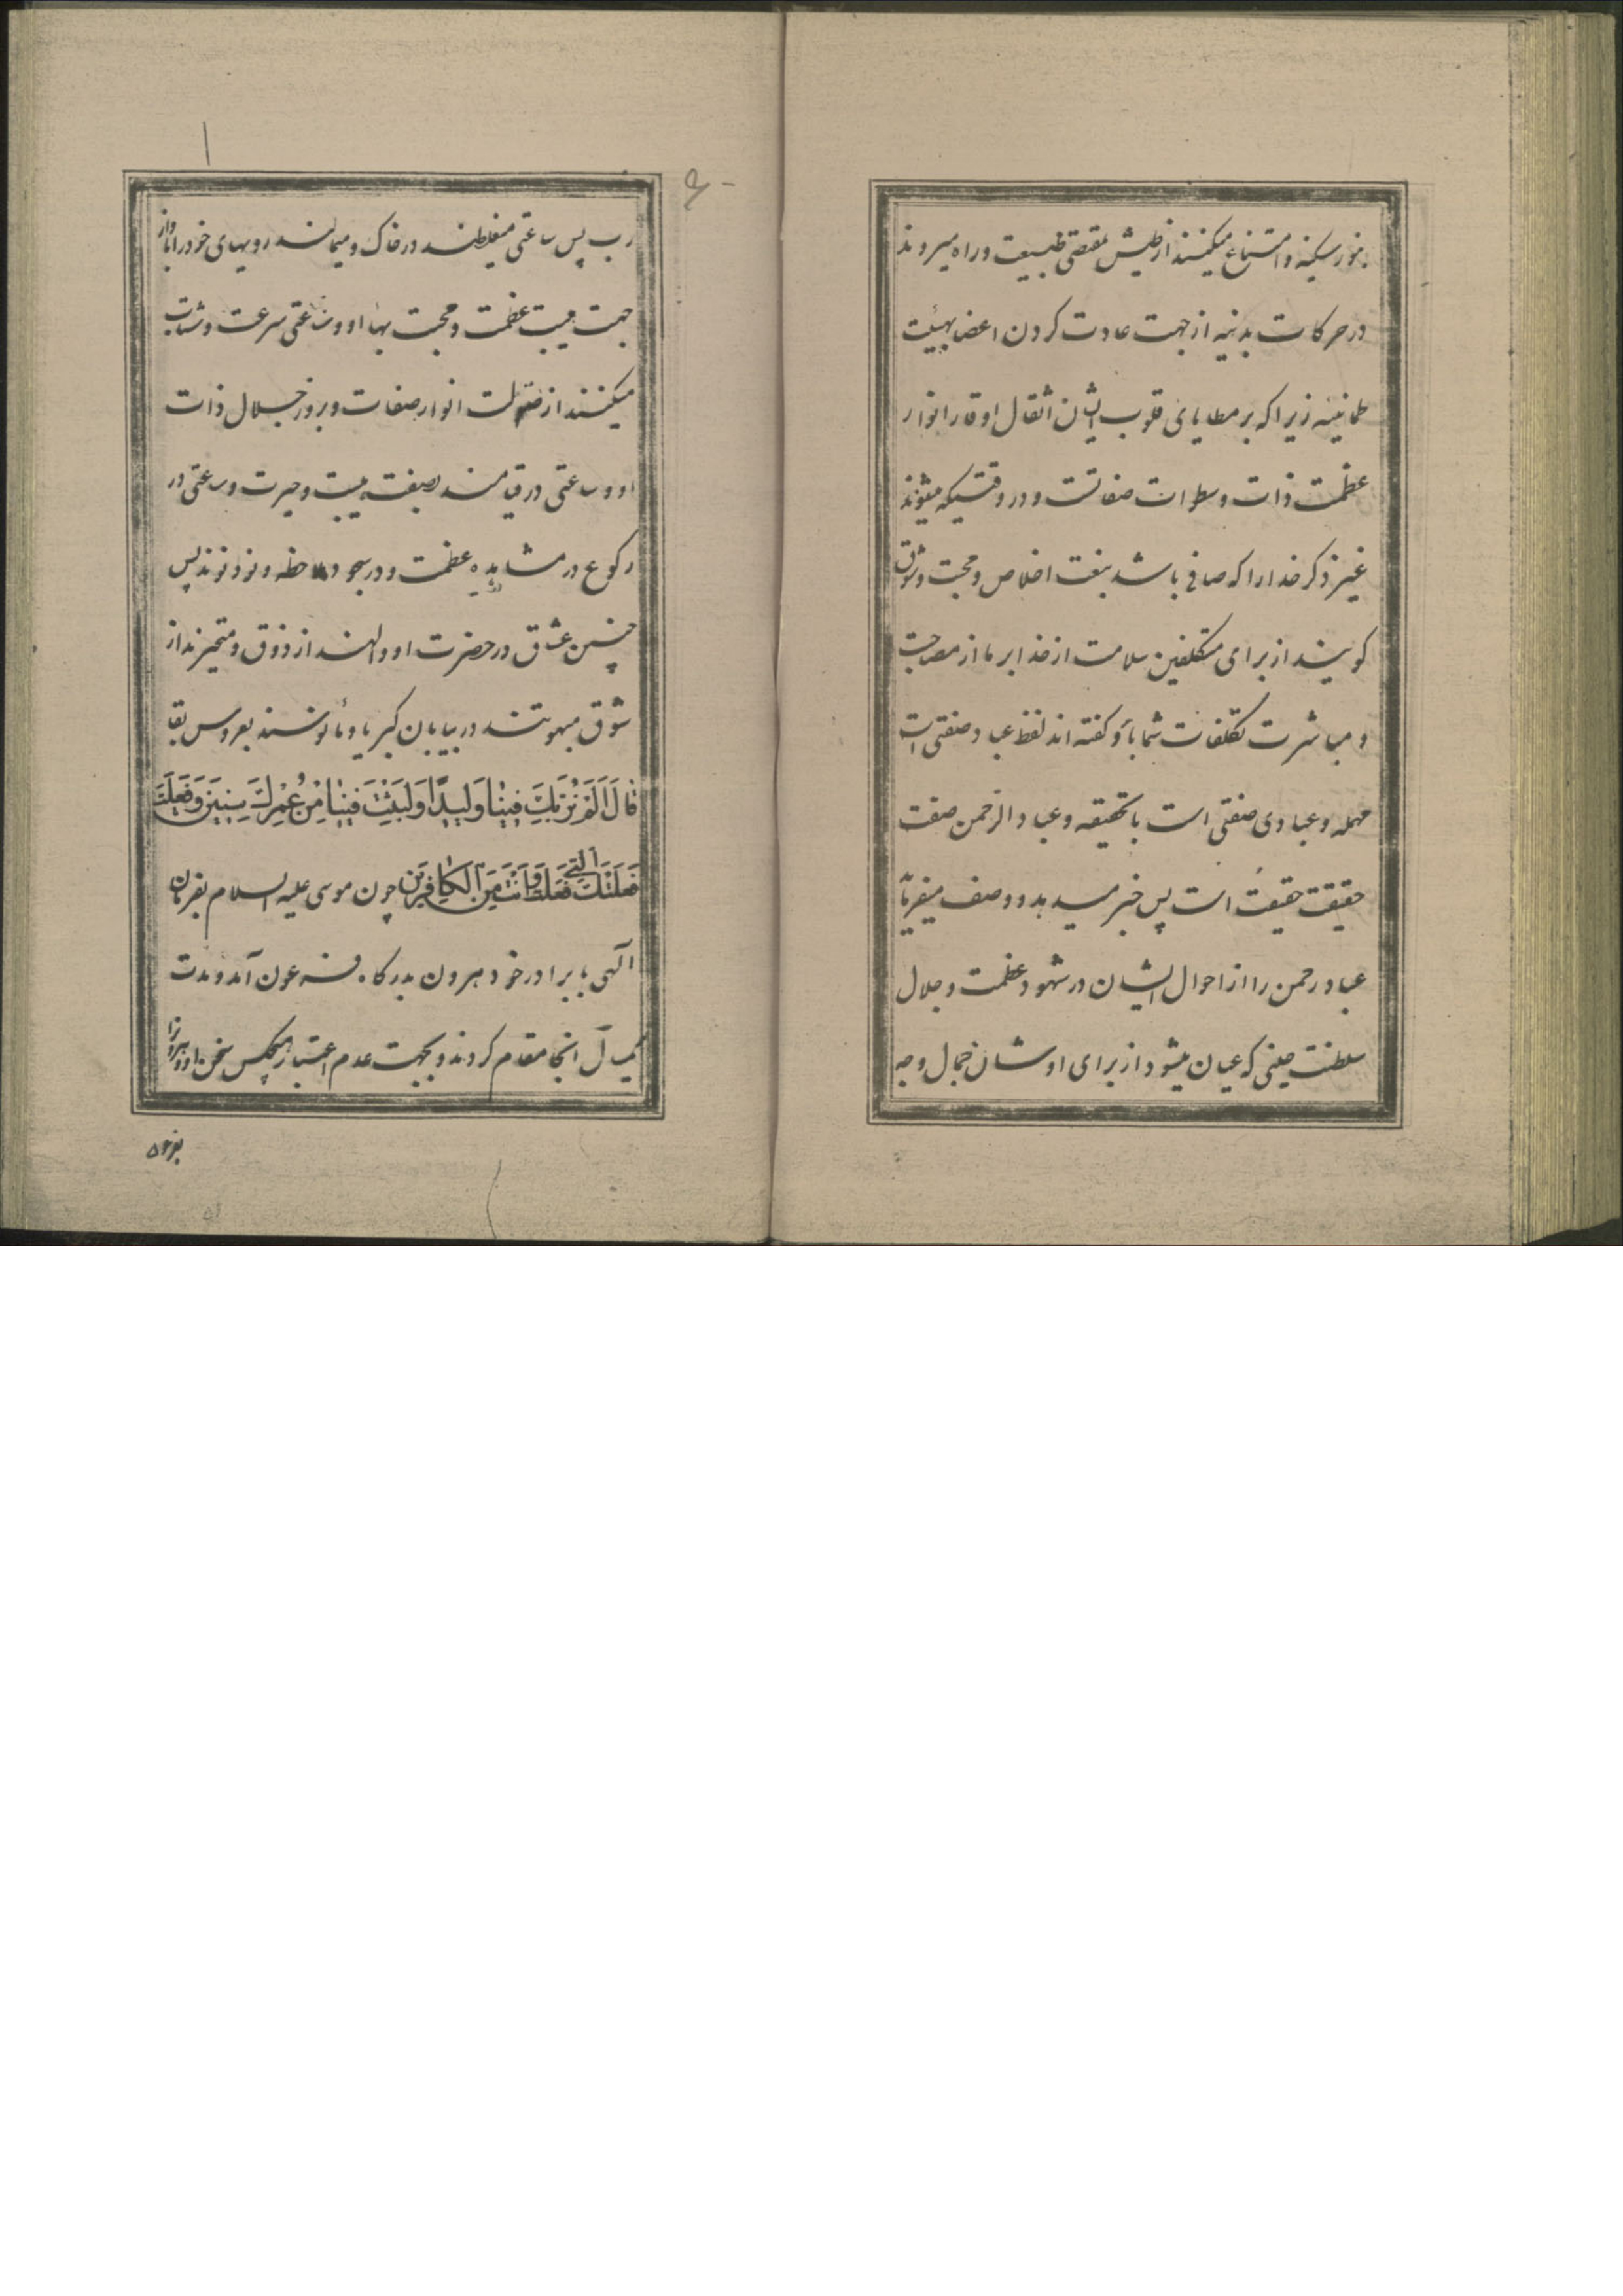 بنور سکینه و امتناع میکنند از طیش بمقتضی طبیعت و راه میروند
در حرکات بدنیه از جهت عادت کردن اعضا بهیئت
طمانینه زیرا که بر مطایای قلوب ایشان اثقال اوقار انوار
عظمت ذات و سطرات صفاتست و در وقتیکه میشوند
غیر ذکر خدا را که صافی باشد بنعت اخلاص و محبت و شوق
کویند از برای متکلفین سلامت از خدا بر ما از مصاحبت
و مباشرت تکلفات شما باد و کفته اند لفظ عباد صفتی است
مهمله و عبادی صفتی است با تحقیقه و عباد الرحمن صفت
حقیقت حقیقت است پس خبر میدهد و وصف میفرماید
عباد رحمن را از احوال ایشان در شهود عظمت و جلال
سلطنت حینی که عیان میشود از برای اوشان جمال وجه
رب پس ساعتی میغلطند در خاک و میمالند رویهای خود را
جهت هیبت عظمت و محبت بهاء او و ساعتی سرعت و شتاب
میکنند از صولت انوار صفات و بروز جلال ذات
او و ساعتی در قیامند بصفت هیبت و حیرت و ساعتی در
رکوع در مشاهده عظمت و در سجود ملاحظه و نو پس
چنین عشاق در حضرت او والهند از ذوق و متحیرند از
شوق مبهوتند در بیابان کبریا و مأنوسند بعروس بقا
قَالَ أَلَمْ نُرَبِّكَ فِينَا وَلِيدًا وَلَبِثْتَ فِينَا مِنْ عُمُرِكَ سِنِينَ وَفَعَلْتَ
فَعْلَتَكَ الَّتِي فَعَلْتَ وَأَنْتَ مِنَ الْكَافِرِينَ چون موسی علیه السلام بفرمان
الهی با برادر خود هرون بدرکاه فرعون آمد و مدت
یکسال آنجا مقدم کردند و بجهت عدم اعتبار هیچکس سخن او و هرون را
بفرعون